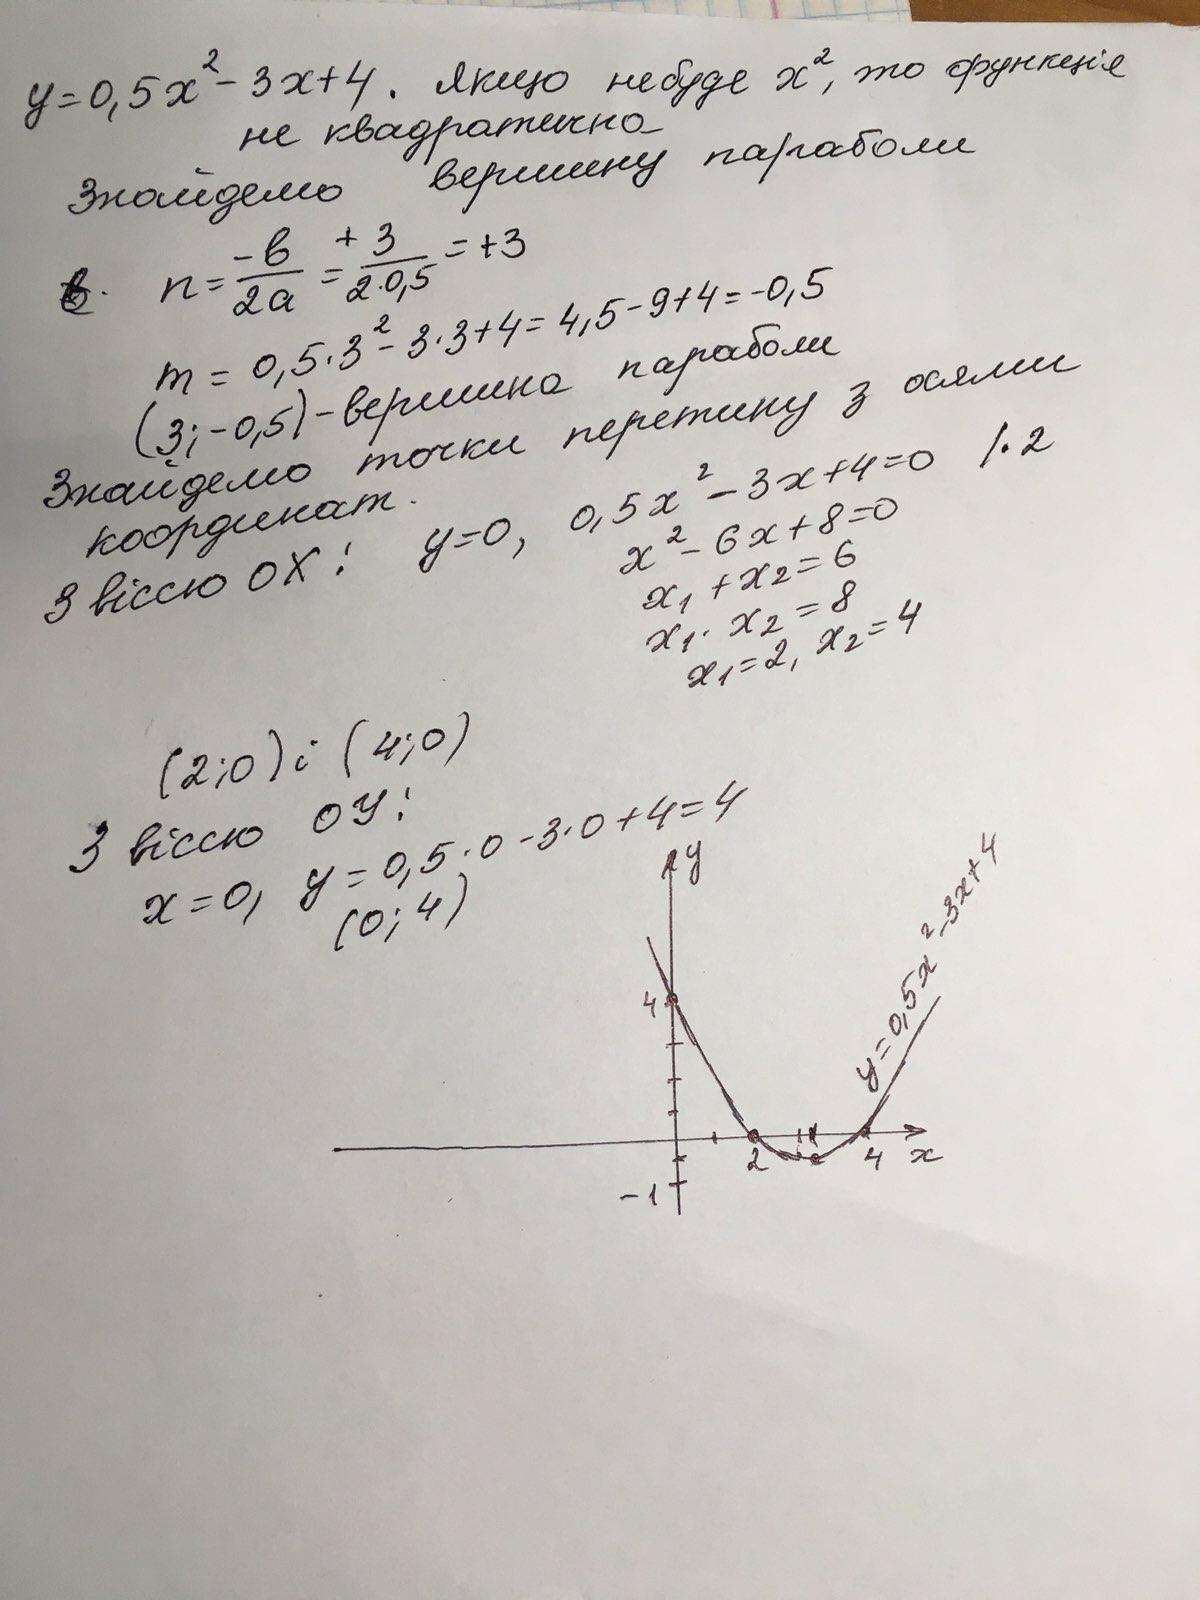 y=0,5x²-3x+4. Якщо небуде x², то функція
не квадратична
Знайдемо вершину параболи
n=-в/2a=+3/2·0,5=+3
m=0,5·3²-3·3+4=4,5-9+4=-0,5
(3;-0,5)-вершина параболи
Знайдемо точки перетину з осями
координат.
З віссю OX: y=0, 0,5x²-3x+4=0 |·2
x²-6x+8=0
x₁+x₂=6
x₁·x₂=8
x₁=2, x₂=4
(2;0) і (4;0)
З віссю ОУ:
x=0, y=0,5·0-3·0+4=4
(0;4)
y
y=0,5x²-3x+4
4
2
4
x
-1